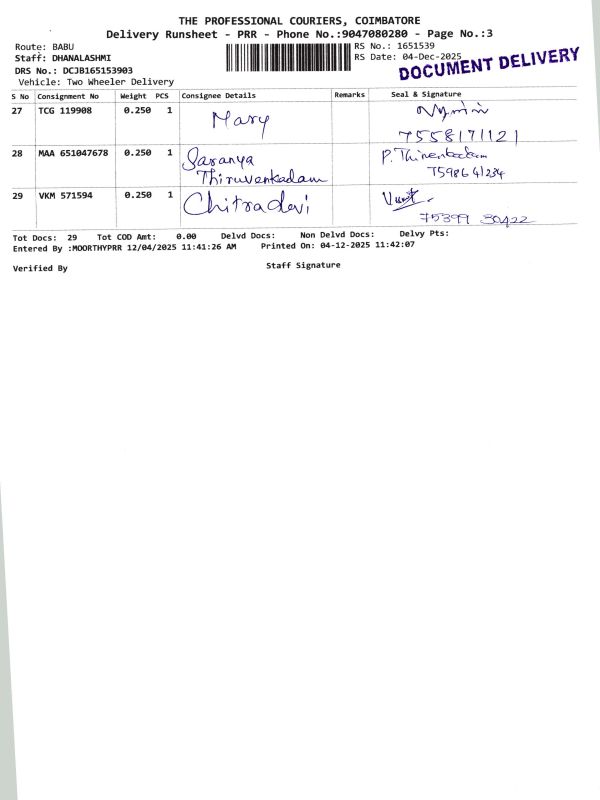 THE PROFESSIONAL COURIERS, COIMBATORE
Delivery Runsheet - PRR - Phone No.:9047080280 - Page No.:3
Route: BABU
Staff: DHANALASHMI
DRS No.: DCJB165153903
Vehicle: Two Wheeler Delivery
RS No.: 1651539
RS Date: 04-Dec-2025
DOCUMENT DELIVERY
S No Consignment No Weight PCS Consignee Details Remarks Seal & Signature
27 TCG 119908 0.250 1 Mary 7558171121
28 MAA 651047678 0.250 1 Saranya Thiruvenkadam P. Thiruvenkadam 7598641234
29 VKM 571594 0.250 1 Chitradevi 75399 30422
Tot Docs: 29 Tot COD Amt: 0.00 Delvd Docs: Non Delvd Docs: Delvy Pts:
Entered By :MOORTHYPRR 12/04/2025 11:41:26 AM Printed On: 04-12-2025 11:42:07
Verified By Staff Signature